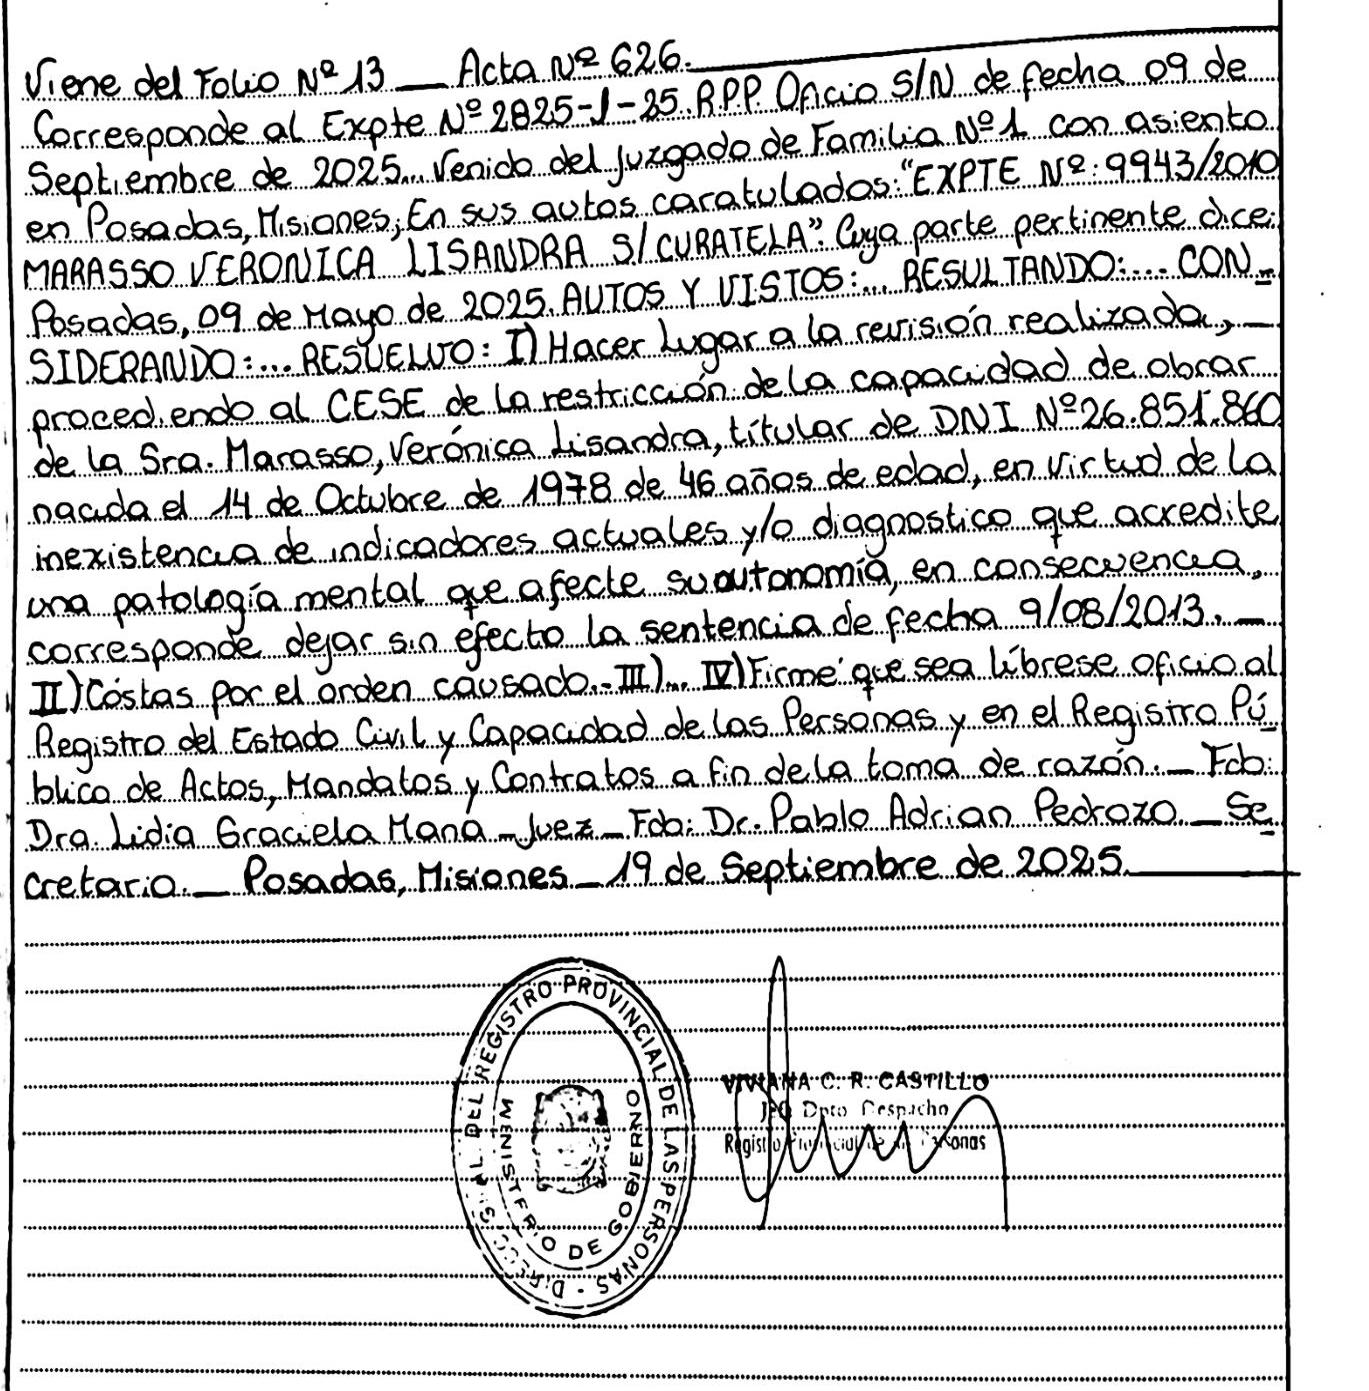 Viene del Folio Nº 13 __ Acta Nº 626.
Corresponde al Expte Nº 2825-J-25. R.P.P. Oficio S/N de fecha 09 de
Septiembre de 2025... Venido del Juzgado de Familia Nº 1 con asiento
en Posadas, Misiones; En sus autos caratulados: "EXPTE Nº: 9943/2010
MARASSO VERONICA LISANDRA S/ CURATELA". Cuya parte pertinente dice:
Posadas, 09 de Mayo de 2025. AUTOS Y VISTOS:... RESULTANDO:... CON-
SIDERANDO:... RESUELVO: I) Hacer Lugar a la revisión realizada, __
procediendo al CESE de la restricción de la capacidad de obrar
de la Sra. Marasso, Verónica Lisandra, titular de DNI Nº 26.851.860
nacida el 14 de Octubre de 1978 de 46 años de edad, en virtud de la
inexistencia de indicadores actuales y/o diagnostico que acredite
una patología mental que afecte su autonomía, en consecuencia,
corresponde dejar sin efecto la sentencia de fecha 9/08/2013. __
II) Costas por el orden causado.- III)... IV) Firme que sea líbrese oficio al
Registro del Estado Civil y Capacidad de las Personas y en el Registro Pú-
blico de Actos, Mandatos y Contratos a fin de la toma de razón. __ Fdo:
Dra. Lidia Graciela Maná - Juez - Fdo: Dr. Pablo Adrian Pedrozo __ Se-
cretario. __ Posadas, Misiones __ 19 de Septiembre de 2025.
DEL REGISTRO PROVINCIAL DE LAS PERSONAS
MINISTERIO DE GOBIERNO
VIVIANA C. R. CASTILLO
Dpto Despacho